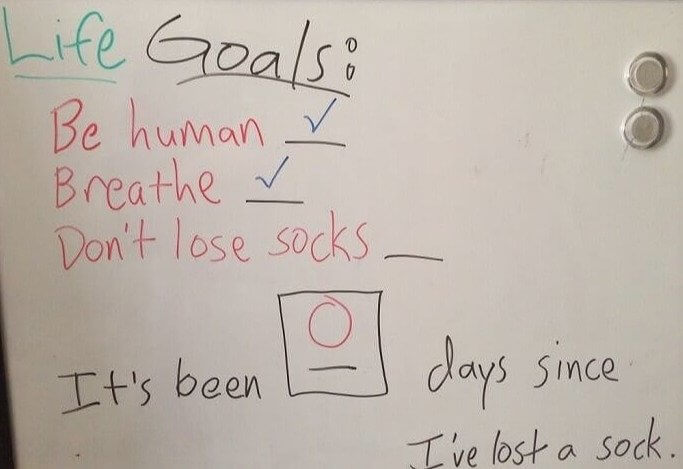 Life Goals:
Be human ✓
Breathe ✓
Don't lose socks __
It's been 0 days since
I've lost a sock.